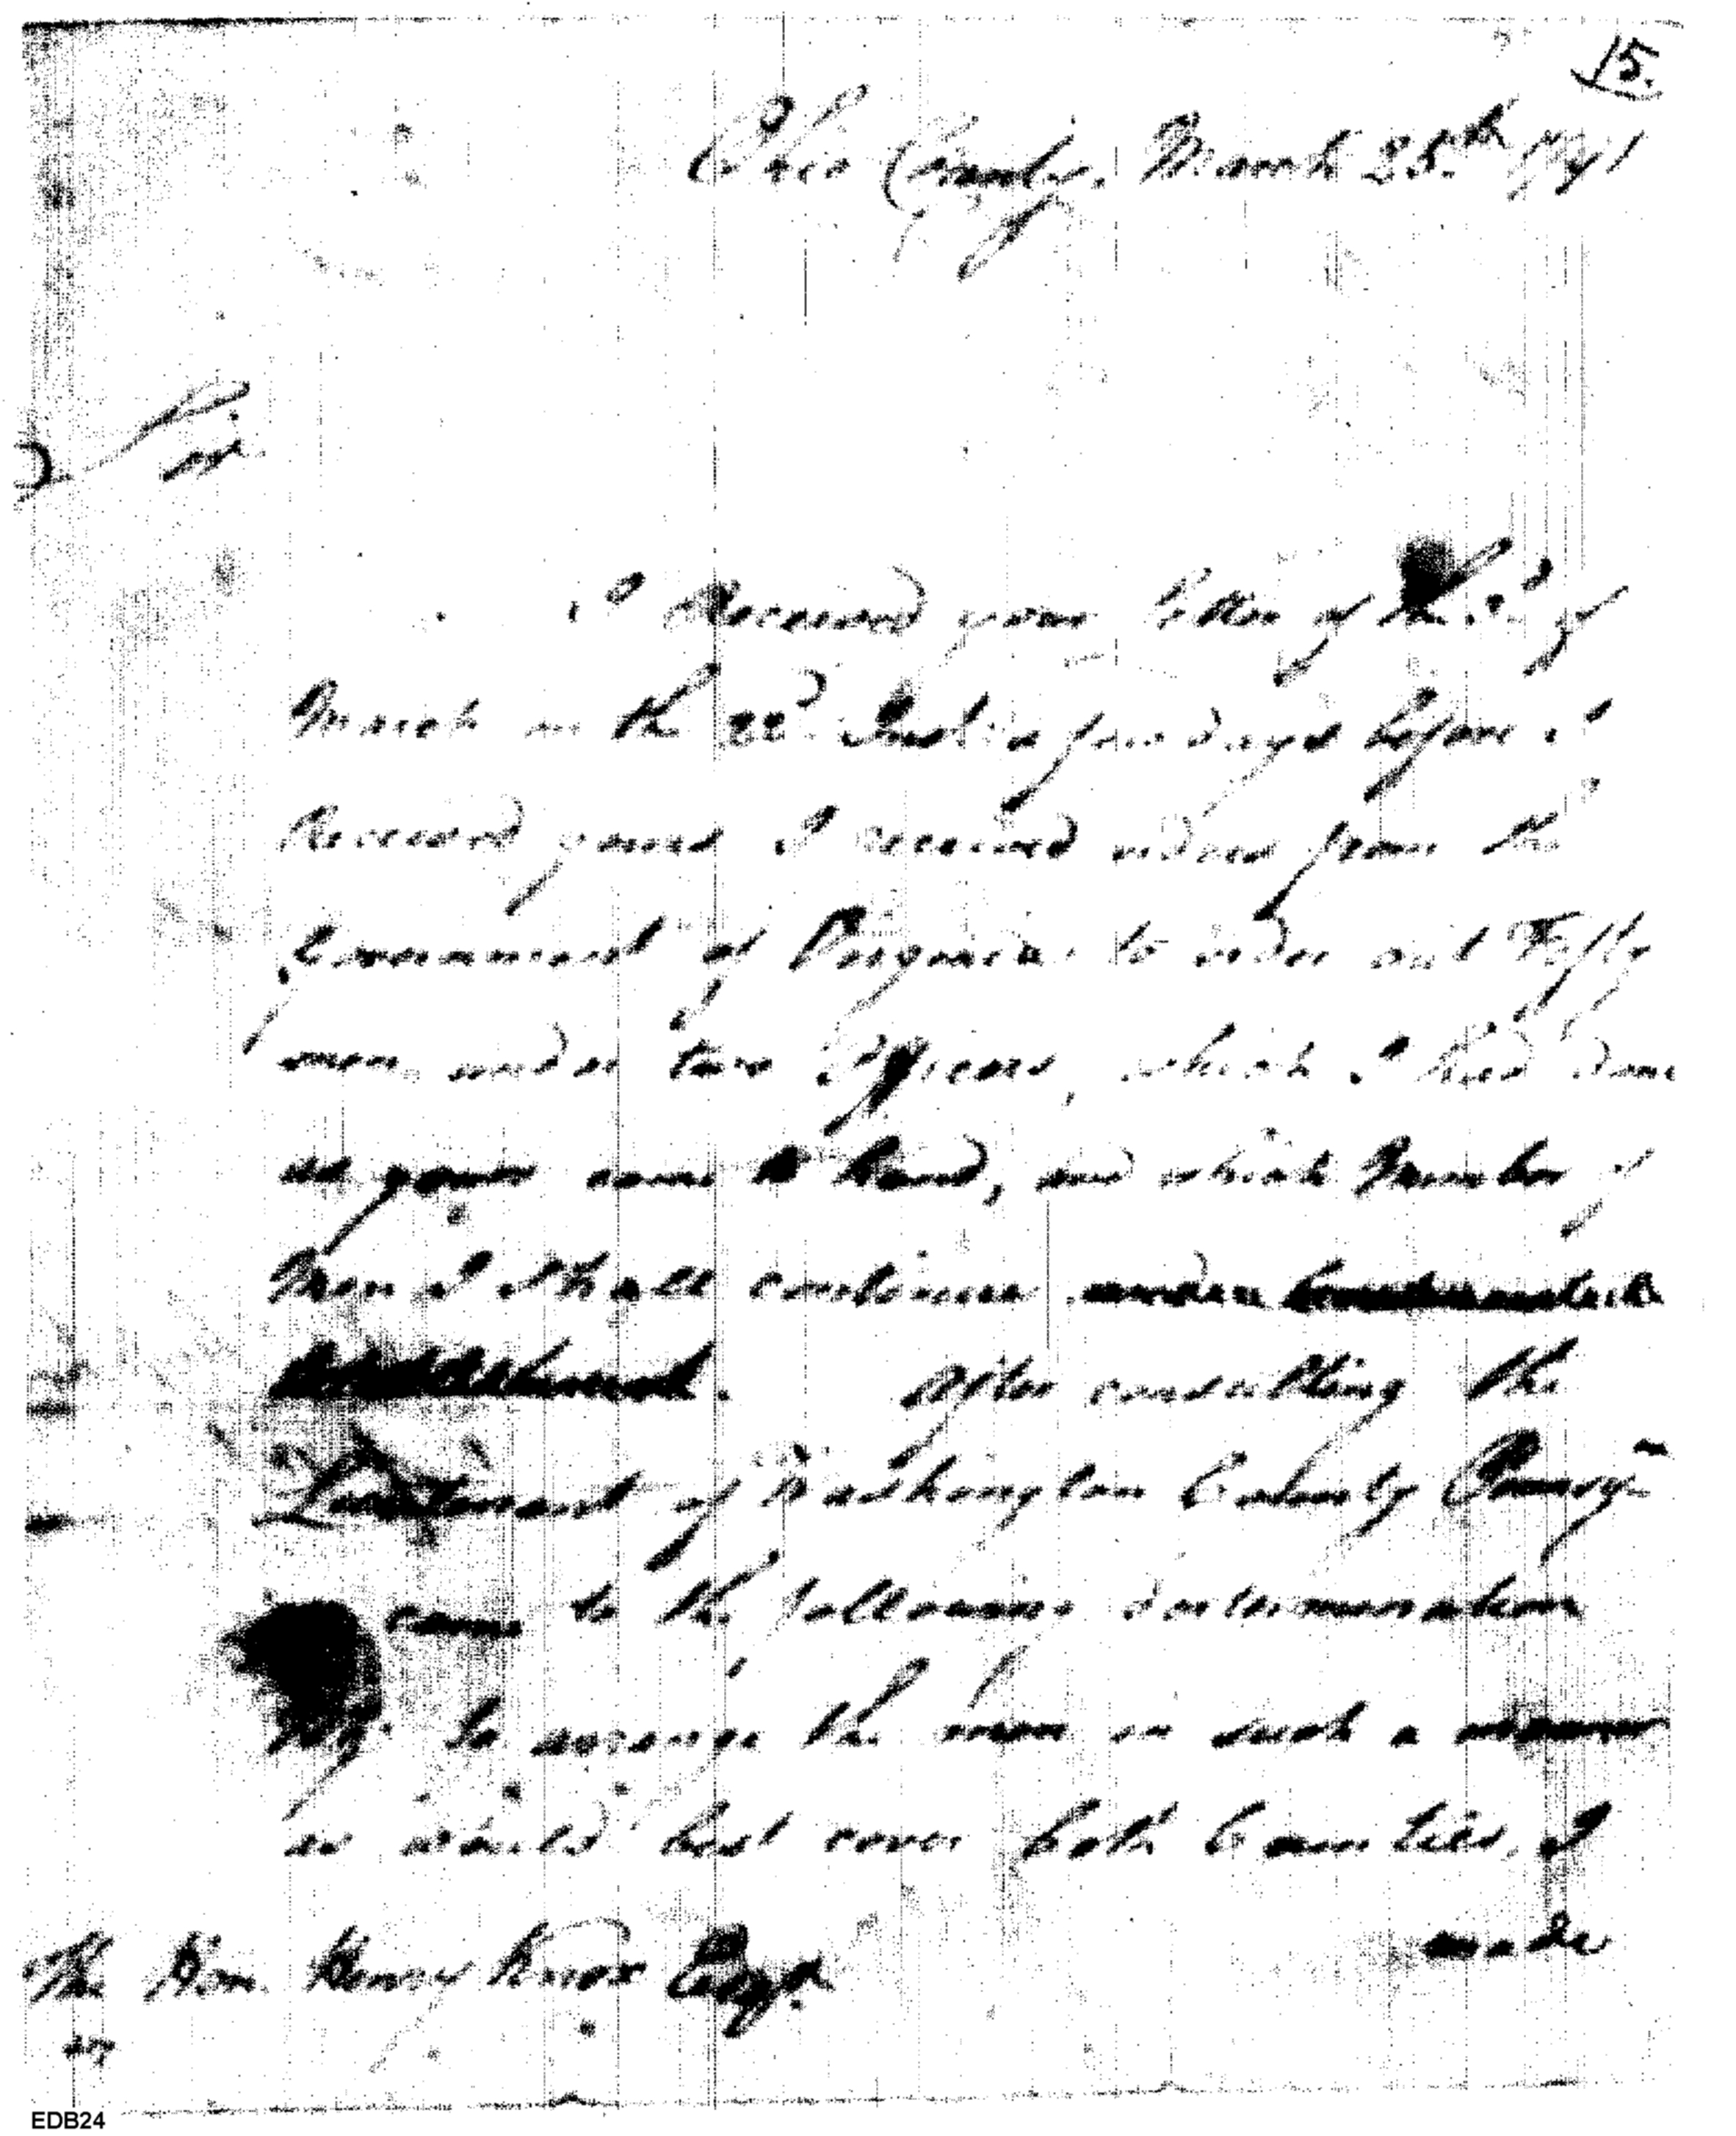 15.
Ohio County, March 25th 1791
Sir
I Received your letter of the 3d of
March on the 22d Inst. a few days before I
Received yours I received orders from the
Government of Virginia to order out Fifty
men under two Officers, which I had done
as yours came to hand, and which Number of
Men I shall continue under
After consulting the
Lieutenant of Washington County Pennsya
came to the following determination
to arrange the men in such a manner
as would best cover both Counties, I
made
The Hon. Henry Knox Esqr.
EDB24